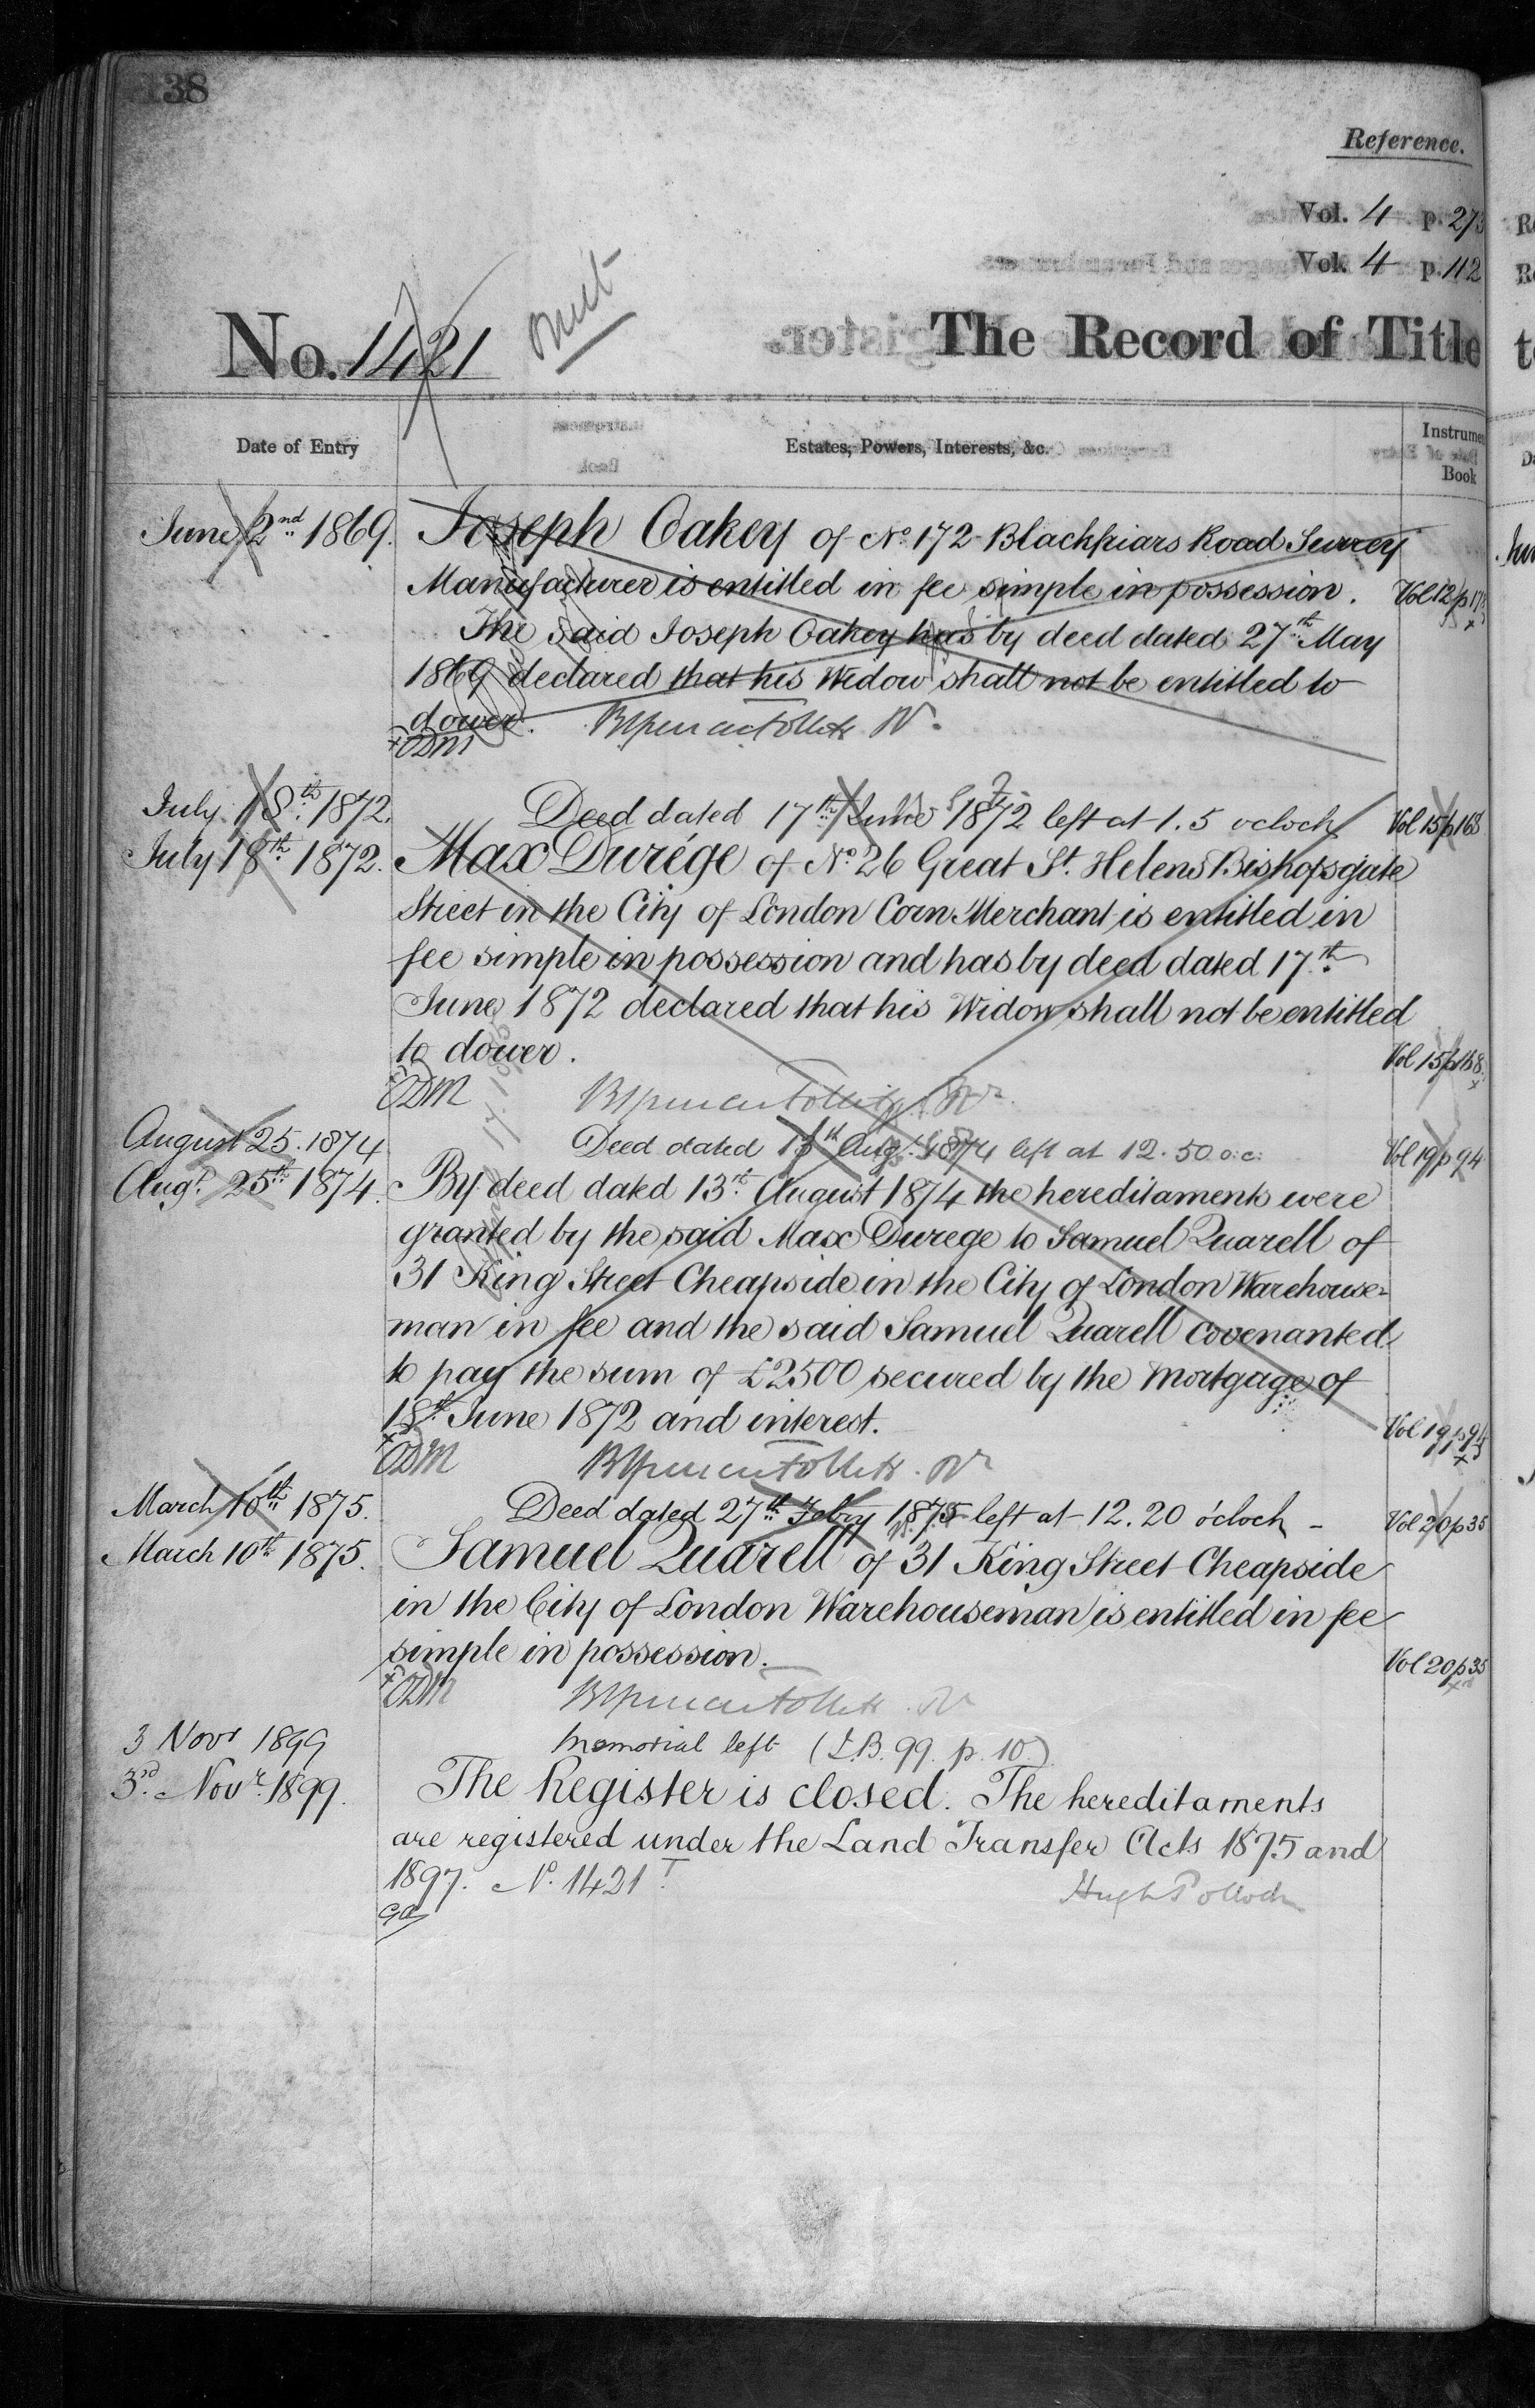 138
Reference.
Vol. 4 p. 273
Vol. 4 p. 112
No. 1421 omit
The Record of Title
Date of Entry
Estates, Powers, Interests, &c.
Instrumen
Book
June 2nd 1869. Joseph Oakey of No. 172 Blackfriars Road Surrey
Manufacturer is entitled in fee simple in possession. Vol 12 p 17
The said Joseph Oakey has by deed dated 27th May
1869 declared that his Widow shall not be entitled to
dower.
ODM
July 18th 1872. Deed dated 17th June 1872 left at 1.5 oclock Vol 15 p 168
July 18th 1872. Max Durége of No. 26 Great St. Helens Bishopsgate
Street in the City of London Corn Merchant is entitled in
fee simple in possession and has by deed dated 17th
June 1872 declared that his Widow shall not be entitled
to dower. Vol 15 p 168
ODM
August 25. 1874 Deed dated 13th Aug. 1874 left at 12.50 o.c. Vol 19 p 94
Augt. 25th 1874. By deed dated 13th August 1874 the hereditaments were
granted by the said Max Durege to Samuel Quarell of
31 King Street Cheapside in the City of London Warehouse=
man in fee and the said Samuel Quarell covenanted
to pay the sum of £2500 secured by the Mortgage of
18th June 1872 and interest. Vol 19 p 94
ODM
March 10th 1875. Deed dated 27th Febry 1875 left at 12.20 o'clock - Vol 20 p 35
March 10th 1875. Samuel Quarell of 31 King Street Cheapside
in the City of London Warehouseman is entitled in fee
simple in possession. Vol 20 p 35
ODM
3 Novr 1899 Memorial left (L.B. 99. p. 10.)
3rd Novr. 1899. The Register is closed. The hereditaments
are registered under the Land Transfer Acts 1875 and
1897. No. 1421 T.
Hugh Pollock